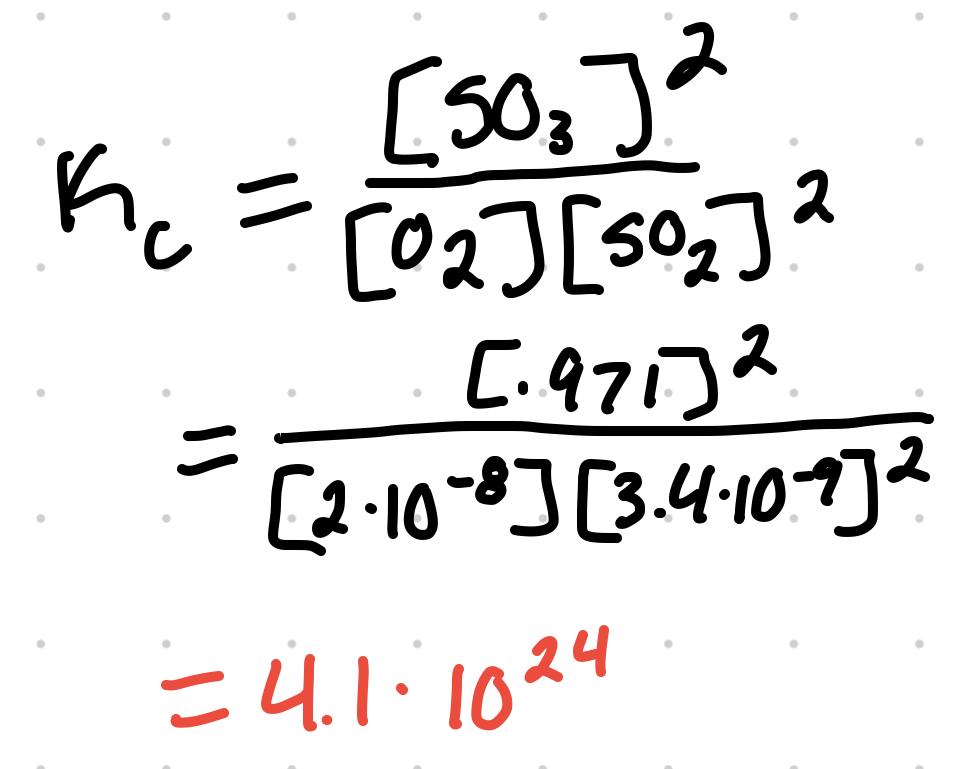 K_c = [SO₃]² / [O₂][SO₂]²
= [.971]² / [2·10⁻⁸][3.4·10⁻⁹]²
= 4.1·10²⁴